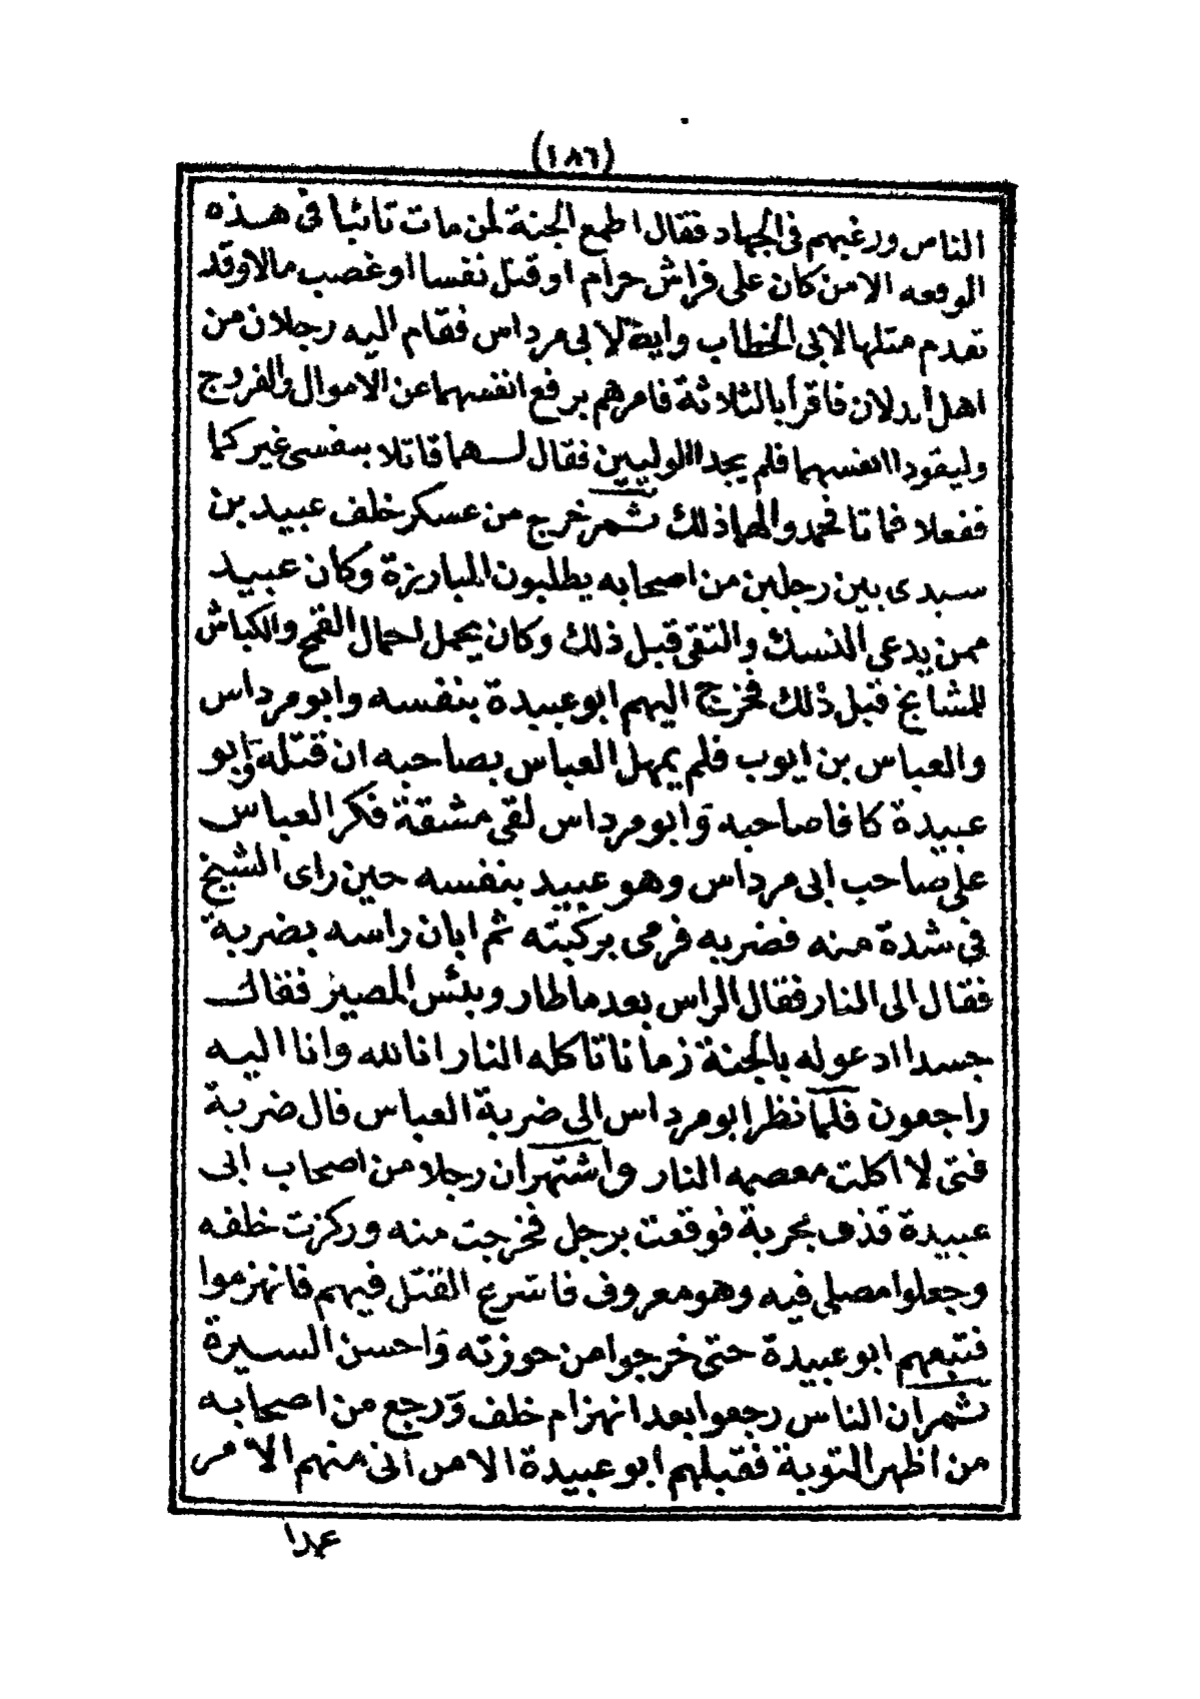 (١٨٦)
الناس ورغبهم فى الجهاد فقال اطمع الجنة لمن مات تائبا فى هذه
الوقعه الا من كان على فراش حرام او قتل نفسا او غصب مالا وقد
تقدم مثلها لابى الخطاب وايضا لابى مرداس فقام اليه رجلان من
اهل ارلان فاقرأ بالثلاثة فامرهم برفع انفسهما عن الاموال والفروج
وليقودا انفسهما فلم يجدا الوليين فقال لهما قاتلا بنفسى غير كما
ففعلا فماتا فحمد والهما ذلك ثم خرج من عسكر خلف عبيد بن
سبدى بين رجلين من اصحابه يطلبون المبارزة وكان عبيد
ممن يدعى النسك والتقى قبل ذلك وكان يحمل احمال القمح والكباش
للمشايخ قبل ذلك فخرج اليهم ابو عبيدة بنفسه وابو مرداس
والعباس بن ايوب فلم يمهل العباس بصاحبه ان قتله وابو
عبيدة كافا صاحبه وابو مرداس لقى مشقة فكر العباس
على صاحب ابى مرداس وهو عبيد بنفسه حين راى الشيخ
فى شدة منه فضربه فرمى بركبته ثم ابان راسه بضربة
فقال الى النار فقال الراس بعد ما طار وبئس المصير فقال
جسدا ادعو له بالجنة زمانا تاكله النار انا لله وانا اليه
راجعون فلما نظر ابو مرداس الى ضربة العباس قال ضربة
فتى لا اكلت معصمه النار واشتهر ان رجلا من اصحاب ابى
عبيدة قذف بحربة فوقعت برجل فخرجت منه وركزت خلفه
وجعلوا مصلى فيه وهو معروف فاسرع القتل فيهم فانهزموا
فتبعهم ابو عبيدة حتى خرجوا من حوزته واحسن السيرة
ثم ان الناس رجعوا بعد انهزام خلف ورجع من اصحابه
من اظهر التوبة فقبلهم ابو عبيدة الا من أتى منهم الامر
عمدا